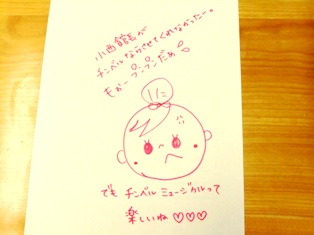 小西館長が
チンベルならさせてくれなかったー。
もぉープンプンだぁ
でも チンベル ミュージカルって
楽しいね♡♡♡